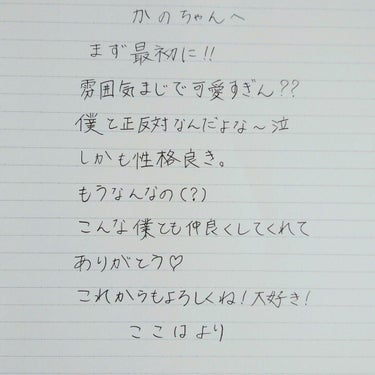 かのちゃんへ
まず最初に!!
雰囲気まじで可愛すぎん??
僕と正反対なんだよな〜泣
しかも性格良き。
もうなんなの(?)
こんな僕とも仲良くしてくれて
ありがとう♡
これからもよろしくね!大好き!
ここはより